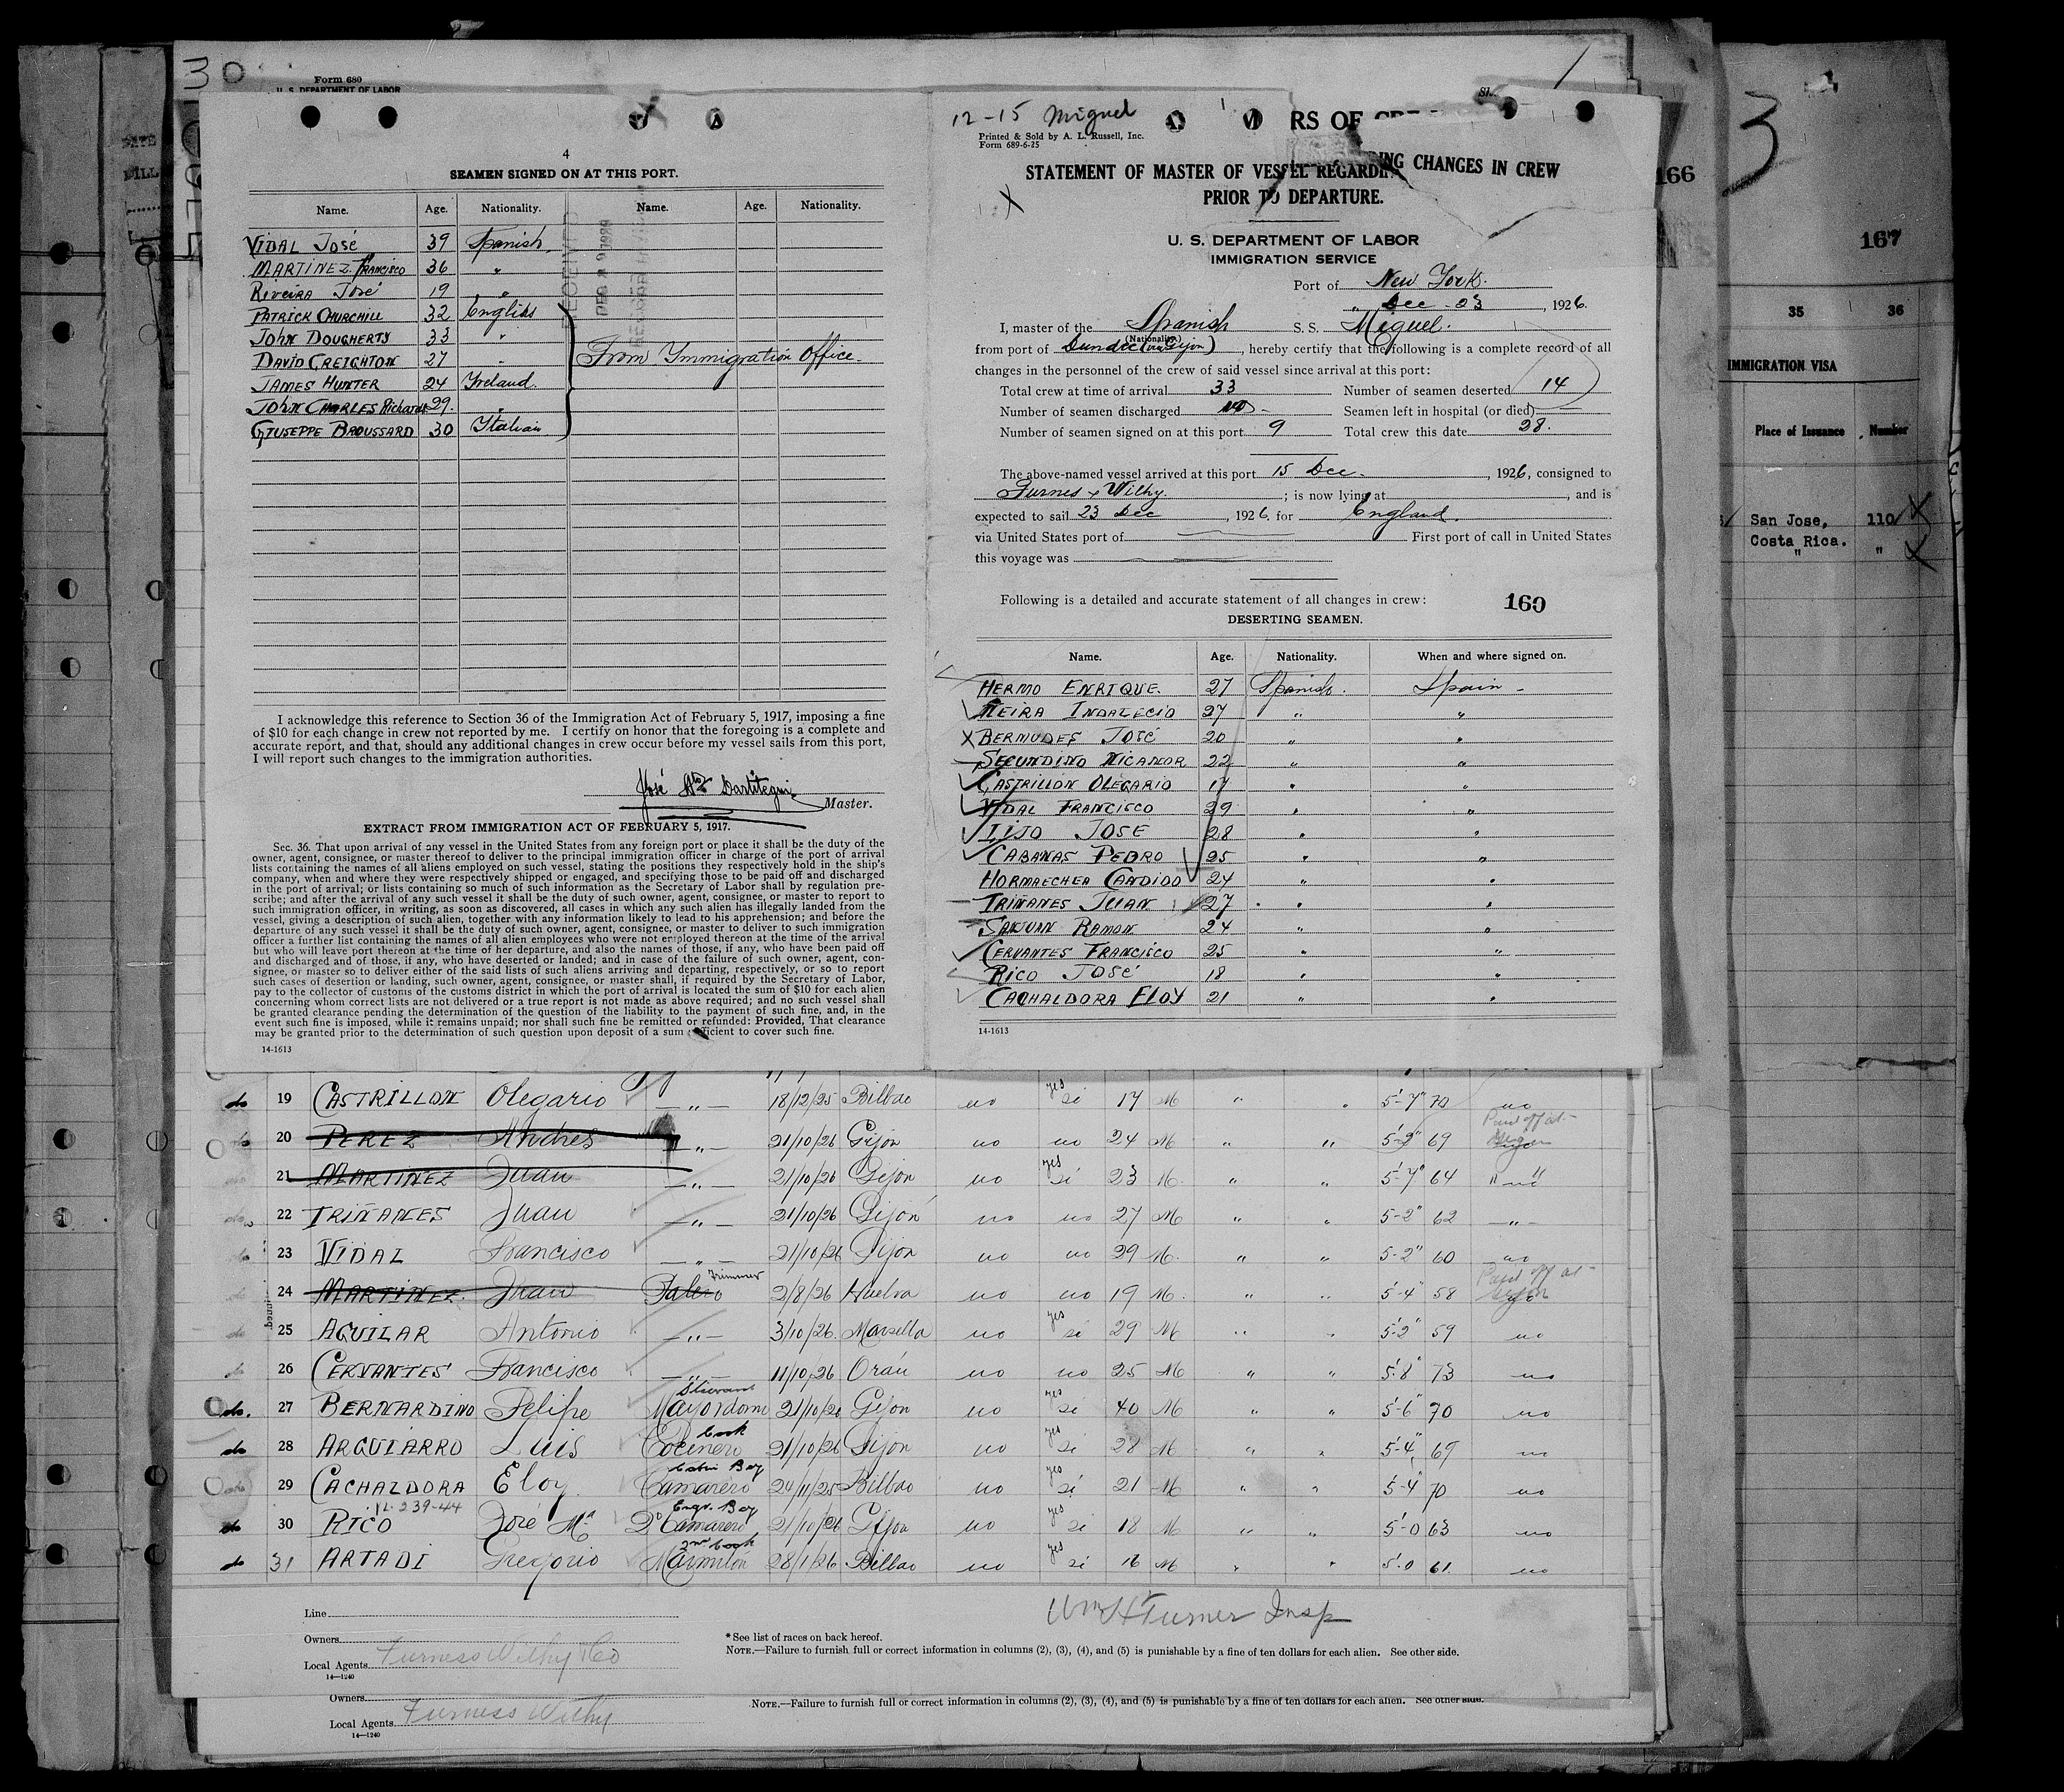 30
Form 680
U. S. DEPARTMENT OF LABOR
4
SEAMEN SIGNED ON AT THIS PORT.
Name. Age. Nationality. Name. Age. Nationality.
VIDAL José 39 Spanish
MARTINEZ Francisco 36 "
Riveira José 19 "
PATRICK CHURCHILL 32 English
JOHN DOUGHERTY 33 "
DAVID CREIGHTON 27 "
From Immigration Office.
JAMES HUNTER 24 Ireland.
JOHN CHARLES Richards 29. "
GIUSEPPE BROUSSARD 30 Italian
RECEIVED
I acknowledge this reference to Section 36 of the Immigration Act of February 5, 1917, imposing a fine
of $10 for each change in crew not reported by me. I certify on honor that the foregoing is a complete and
accurate report, and that, should any additional changes in crew occur before my vessel sails from this port,
I will report such changes to the immigration authorities.
José
Master.
EXTRACT FROM IMMIGRATION ACT OF FEBRUARY 5, 1917.
Sec. 36. That upon arrival of any vessel in the United States from any foreign port or place it shall be the duty of the
owner, agent, consignee, or master thereof to deliver to the principal immigration officer in charge of the port of arrival
lists containing the names of all aliens employed on such vessel, stating the positions they respectively hold in the ship's
company, when and where they were respectively shipped or engaged, and specifying those to be paid off and discharged
in the port of arrival; or lists containing so much of such information as the Secretary of Labor shall by regulation pre-
scribe; and after the arrival of any such vessel it shall be the duty of such owner, agent, consignee, or master to report to
such immigration officer, in writing, as soon as discovered, all cases in which any such alien has illegally landed from the
vessel, giving a description of such alien, together with any information likely to lead to his apprehension; and before the
departure of any such vessel it shall be the duty of such owner, agent, consignee, or master to deliver to such immigration
officer a further list containing the names of all alien employees who were not employed thereon at the time of the arrival
but who will leave port thereon at the time of her departure, and also the names of those, if any, who have been paid off
and discharged and of those, if any, who have deserted or landed; and in case of the failure of such owner, agent, con-
signee, or master so to deliver either of the said lists of such aliens arriving and departing, respectively, or so to report
such cases of desertion or landing, such owner, agent, consignee, or master shall, if required by the Secretary of Labor,
pay to the collector of customs of the customs district in which the port of arrival is located the sum of $10 for each alien
concerning whom correct lists are not delivered or a true report is not made as above required; and no such vessel shall
be granted clearance pending the determination of the question of the liability to the payment of such fine, and, in the
event such fine is imposed, while it remains unpaid; nor shall such fine be remitted or refunded: Provided, That clearance
may be granted prior to the determination of such question upon deposit of a sum sufficient to cover such fine.
14-1613
12-15 Miguel
Printed & Sold by A. L. Russell, Inc.
Form 689-6-25
RS OF
STATEMENT OF MASTER OF VESSEL REGARDING CHANGES IN CREW
PRIOR TO DEPARTURE.
U. S. DEPARTMENT OF LABOR
IMMIGRATION SERVICE
Port of New York.
" Dec - 23, 1926.
I, master of the Spanish S. S. Miguel.
(Nationality)
from port of Dundee (via Gijon), hereby certify that the following is a complete record of all
changes in the personnel of the crew of said vessel since arrival at this port:
Total crew at time of arrival 33 Number of seamen deserted 14
Number of seamen discharged no - Seamen left in hospital (or died) —
Number of seamen signed on at this port 9 Total crew this date 28.
The above-named vessel arrived at this port 15 Dec., 1926, consigned to
Furnes & Withy; is now lying at , and is
expected to sail 23 Dec, 1926. for England.
via United States port of First port of call in United States
this voyage was
Following is a detailed and accurate statement of all changes in crew:
160
DESERTING SEAMEN.
Name. Age. Nationality. When and where signed on.
HERMO ENRIQUE. 27 Spanish. Spain -
NEIRA INDALECIO 27 " "
X BERMUDES JOSÉ 20 " "
SECUNDINO NICANOR 22 " "
CASTRILLON OLEGARIO 17 " "
VIDAL FRANCISCO 29 " "
LIJO JOSÉ 28 " "
CABANAS PEDRO 25 " "
HORMAECHEA CANDIDO 24 " "
TRINANES JUAN 27 " "
SANJUAN RAMON 24 " "
CERVANTES FRANCISCO 25 " "
RICO JOSÉ 18 " "
CACHALDORA ELOY 21 " "
14-1613
166
3
167
35 36
IMMIGRATION VISA
Place of Issuance Number
San Jose, 110
Costa Rica.
" "
do 19 CASTRILLON Olegario —"— 18/12/25 Bilbao no yes si 17 M " " 5'-7" 70 no
20 PEREZ Andres —"— 21/10/26 Gijon no no 24 M " " 69 Paid off at
21 MARTINEZ Juan —"— 21/10/26 Gijon no yes si 23 M. " " 5'-7" 64 " no "
do 22 TRIÑANES Juan —"— 21/10/26 Gijón no no 27 M " " 5-2" 62 —"—
do 23 VIDAL Francisco —"— 21/10/26 Gijon no no 29 M. " " 5-2" 60 no
24 MARTINEZ. Juan Palero Trimmer 2/8/26 Huelva no no 19 M. " " 5'-4" 58 Paid off at
do 25 AGUILAR Antonio —"— 3/10/26. Marsella no yes si 29 M " " 5'2" 59 no
26 CERVANTES Francisco —"— 11/10/26 Orán no no 25 M " " 5'-8" 73 no
do. 27 BERNARDINO Felipe Steward Mayordomo 21/10/26 Gijon no yes si 40 M " " 5'-6" 70 no
do 28 ARGUIARRO Luis Cook Cocinero 21/10/26 Gijon no yes si 28 M " " 5'-4" 69 no
do 29 CACHALDORA Eloy Cabin Boy Camarero 24/11/25 Bilbao no yes si 21 M " " 5'-4" 70 no
12-239-44
do 30 RICO José Mª Engr. Boy 2º Camarero 21/10/26 Gijon no yes si 18 M " " 5'-0 63 no
do 31 ARTADI Gregorio 2nd Cook Marmiton 28/1/26 Bilbao no yes si 16 M " " 5'.0 61. no
Line
Wm H Turner Insp
Owners
* See list of races on back hereof.
Local Agents Furness Withy & Co
NOTE.—Failure to furnish full or correct information in columns (2), (3), (4), and (5) is punishable by a fine of ten dollars for each alien. See other side.
14—1240
Owners
NOTE.—Failure to furnish full or correct information in columns (2), (3), (4), and (5) is punishable by a fine of ten dollars for each alien. See other side.
Local Agents Furness Withy
14—1240